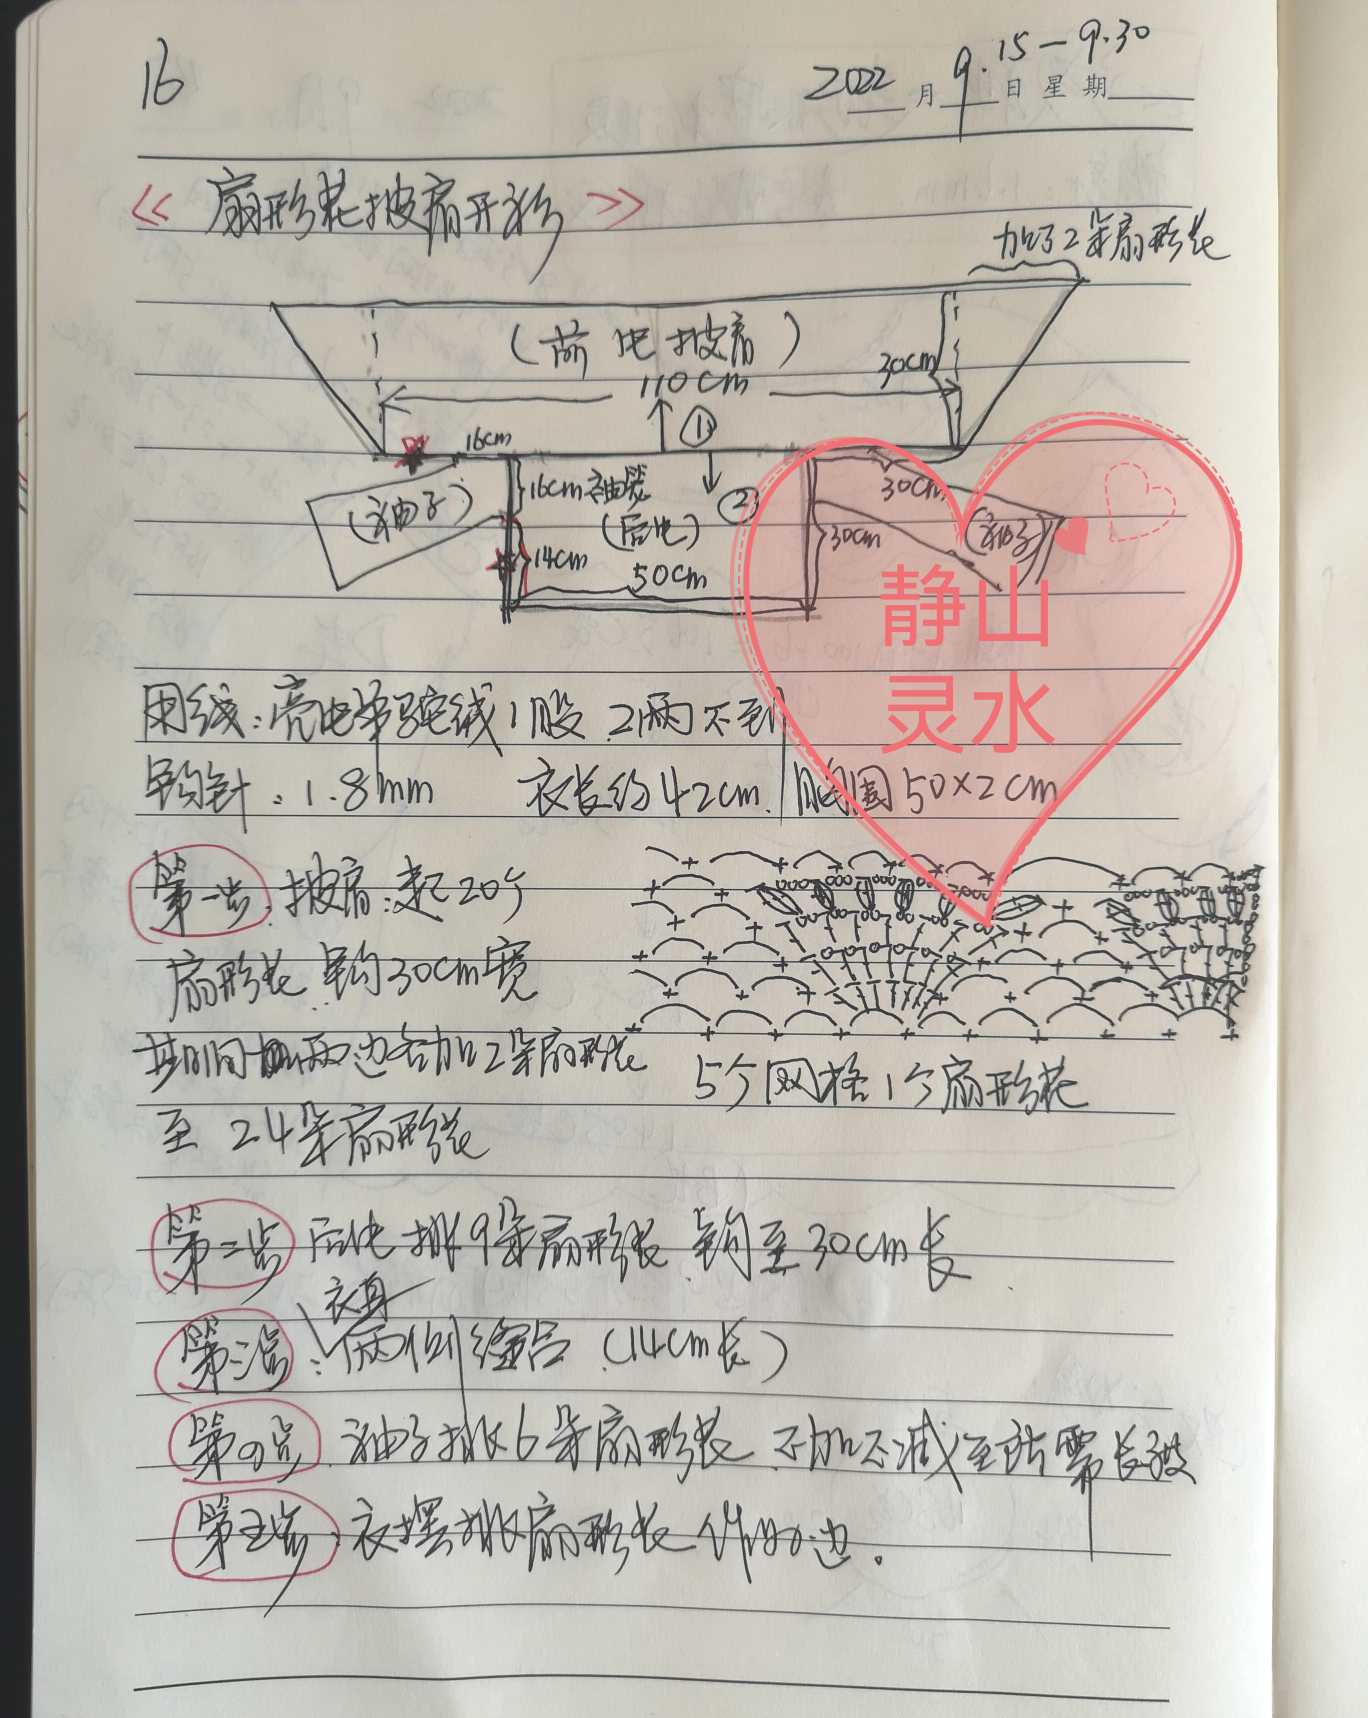 16
2022 月 9 日 星期 9.15-9.30
《扇形花披肩开衫》
加了2朵扇形花
(前片披肩)
110cm
30cm
①
16cm
16cm袖笼
②
30cm
(袖子)
(后片)
(袖子)
14cm
50cm
30cm
静山
灵水
用线: 亮片羊驼绒1股 2两不到
钩针: 1.8mm 衣长约42cm. 胸围50×2cm
第一步: 披肩: 起20个
扇形花 钩30cm宽
其间两边各加2朵扇形花
5个网格1个扇形花
至24朵扇形花
第二步 后片排9朵扇形花 钩至30cm长
衣身
第三步: 两侧缝合 (14cm长)
第四步 袖子排6朵扇形花 不加不减至所需长度
第五步: 衣摆排扇形花作为边.